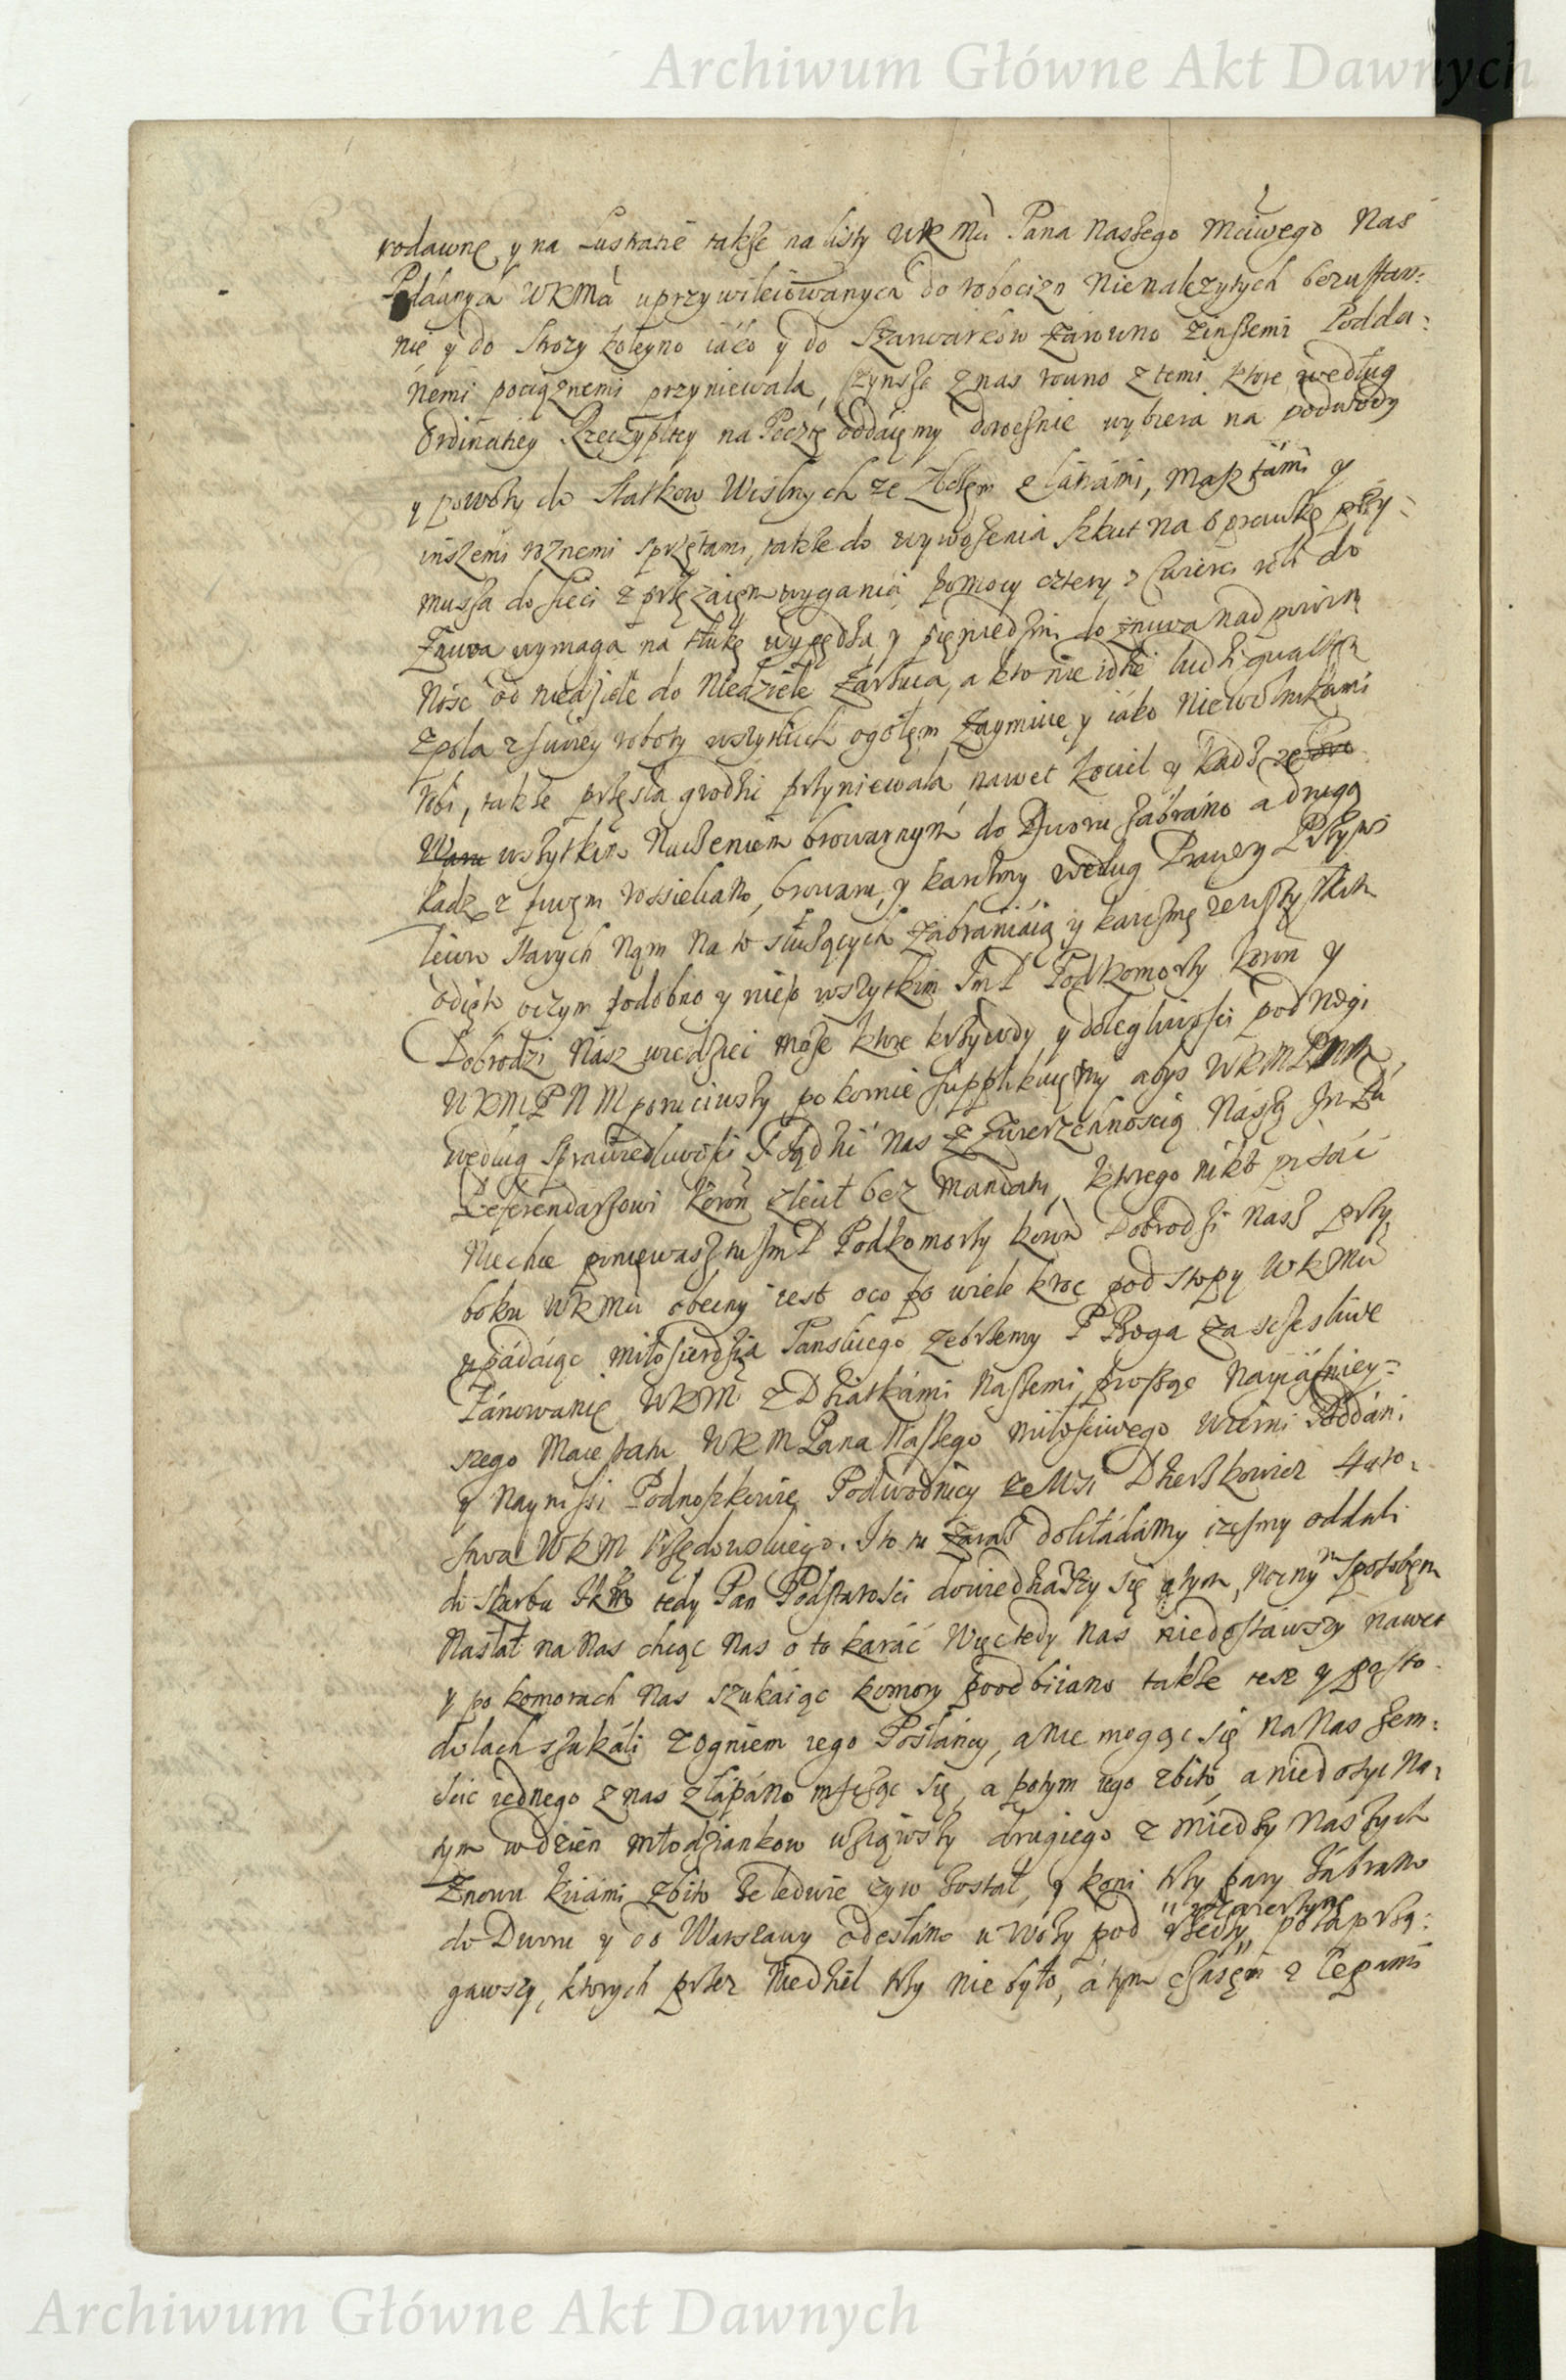 Archiwum Główne Akt Dawnych
rodawne y na Lustratie takze na listy WKMci Pana Naszego Miłłwego Nas
Poddanych WKMci uprzywileiowanych do robocizn Nienalezytych bezustan:
nie y do Strozy koleyno iáko y do Szarwarkow zarowno zinszemi Podda:
nemi pociąznemi przyniewala, Czynsze znas rowno z temi ktore według
Ordinatiey Rzeczypltey na Pocztę oddaięmy dorocznie wybiera na podwody
y powoty do Statkow Wislnych ze Zbożem z łatrami, Masztami y
inszemi roznemi sprzętami, takze do wywozenia szkut na oprawkę przy:
musza do sieci z przęzaięm wygania pomocy cztery z Cwierci roli do
Zniwa wymaga na tłukę wypędza y pieniedzmi do zniwa nad powin
Nosc od niedziele do Niedziele zarzuca, a kto nie idzie ludzi gwałtem
z pola z swoiey roboty wszytkich ogołem zaymuie y iáko Niewolnikami
robi, takze przęsła grodzi przyniewala nawet kocieł y kadz
wszytkim Naczeniem browarnym do Dworu zabrano a drugą
kadz z swoiem rossiekano, browaru y karczmy według Prawa y Przywi
leiow starych Nam na to słuzących zabraniáią y karczmę ze wszystkim
odięto oczym podobno y nieło wszytkim Jm P Podkomorzy koron y
Dobrodzi Nasz wiedzieć moze ktore krzywdy y dolegliwosci pod Nogi
WKMPNM porzuciwszy pokornie supplikuięmy abys WKMPNM
według sprawiedliwosci Sądzić nas z zwierzchnoscią Naszą Jm Pu
Referendarzowi Koron zlecił bez Mandatu ktorego nikt pisać
Niechce poniewasz tu Jm P Podkomorzy koron Dobrodzi Nasz przy
boku WKMci obecny iest oco po wiele kroc pod stopy WKMci
upádaiąc miłosierdzia Panskiego zebrzemy P Boga za sczesliwe
Pánowanie WKM z Dziatkámi Naszemi prosząc Nayiaśniey:
szego Maiestatu WKM Pana Naszego miłosciwego Wierni Poddáni
y Naynissi Podnoszkowie Podwodnicy ze Wsi Dzierzkowic Staro:
stwa WKM Urzędowskiego. Ito tu zaraz dokłádámy iżesmy oddali
do skarbu tedy Pan Podstarosci dowiedziawszy się otym, Nocnym sposobem
Nasłał na Nas chcąc Nas o to karáć Więc tedy Nas niedostawszy nawet
y po komorach Nas szukáiąc komory poodbiiano takze tesz y po sto:
dołach szukáli z ogniem iego Posłáncy, a nie mogąc się na Nas zem:
ścic iednego z nas złapáno mszcząc się, a potym iego zbito, a niedosyc Na:
tym w dzien młodziankow uziąwszy drugiego z miedzy Naszych
Znowu kiiámi zbito ze ledwie zyw został, y koni trzy pary zábrano
do Dworu y do Warszawy odesłáno u woły pod poząprzą:
gawszy, ktorych przez Niedziel trzy nie było, á tym czasem z Cepami
Archiwum Główne Akt Dawnych